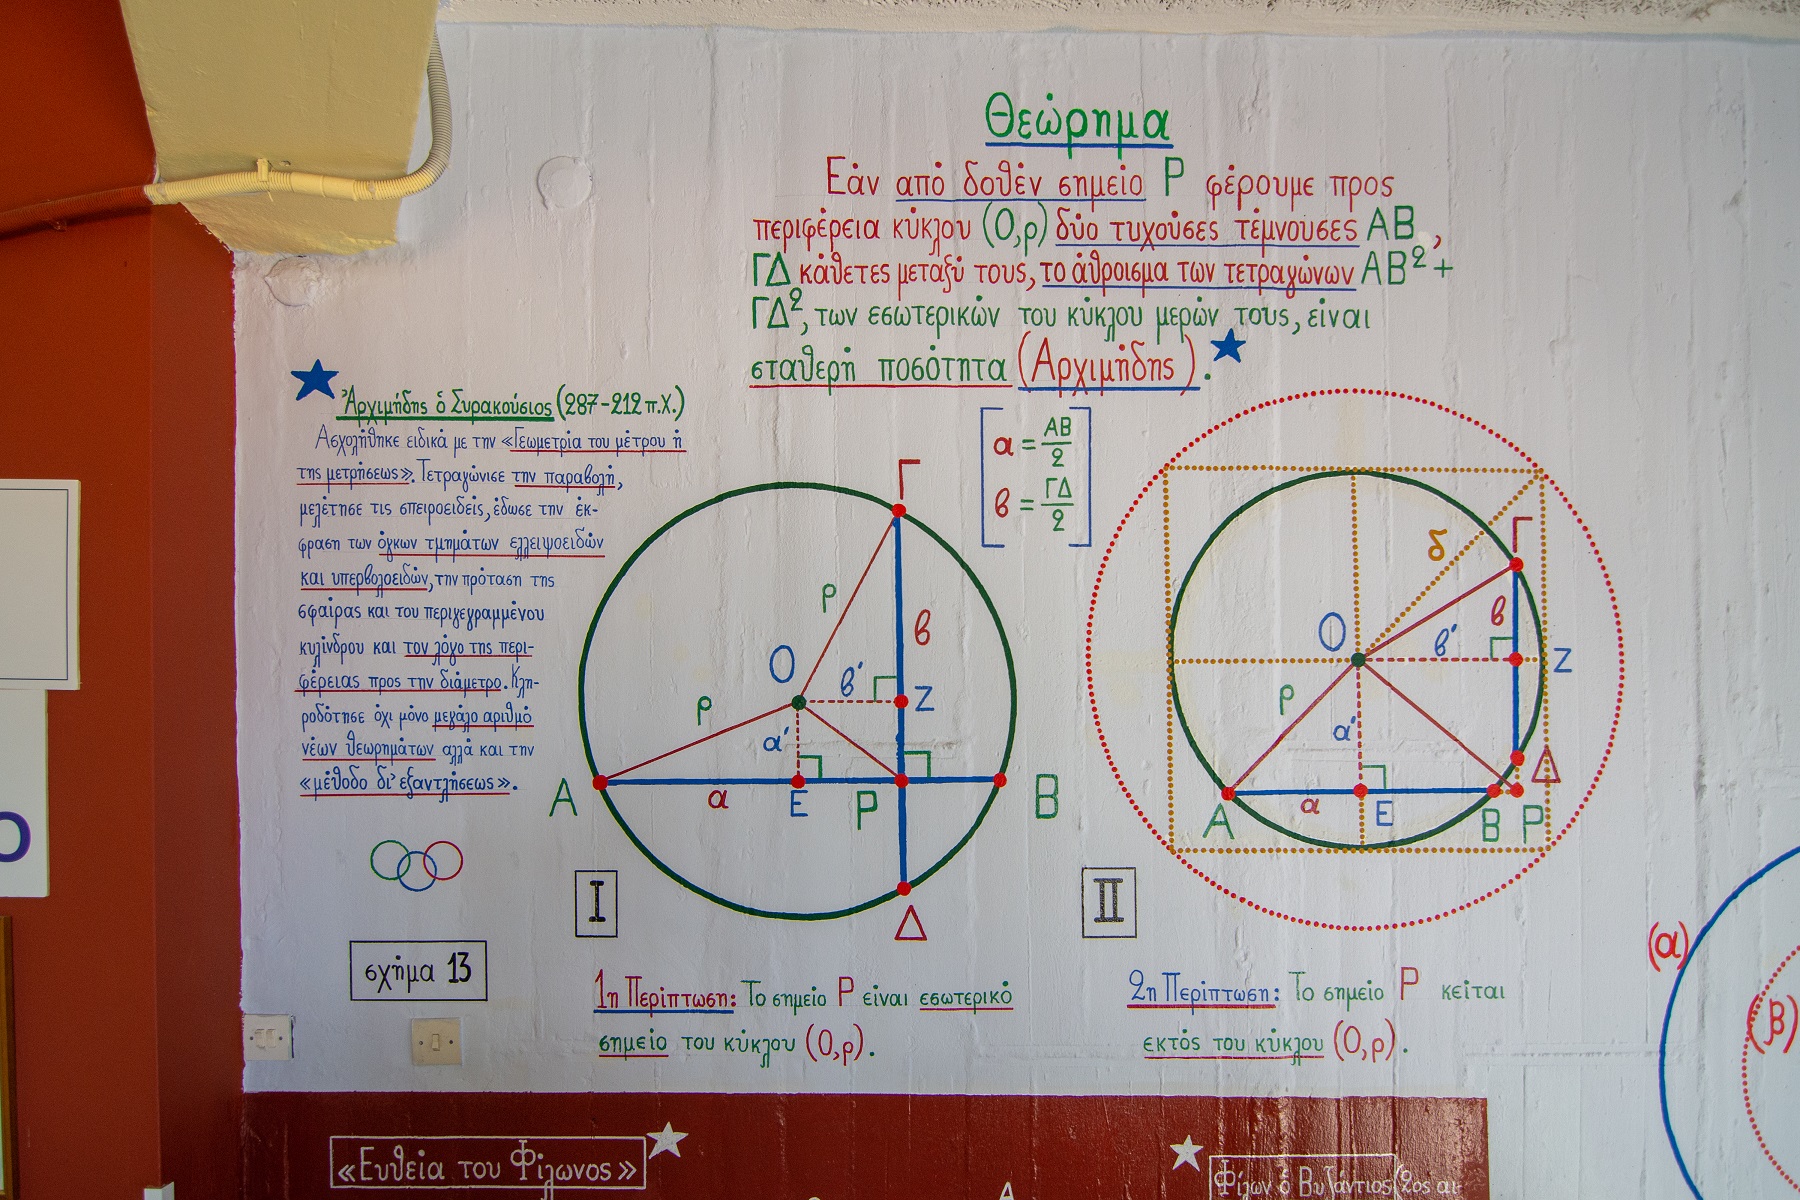 Θεώρημα
Εάν από δοθέν σημείο Ρ φέρουμε προς
περιφέρεια κύκλου (Ο,ρ) δύο τυχούσες τέμνουσες ΑΒ,
ΓΔ κάθετες μεταξύ τους, το άθροισμα των τετραγώνων ΑΒ² +
ΓΔ², των εσωτερικών του κύκλου μερών τους, είναι
σταθερή ποσότητα (Αρχιμήδης).
Ἀρχιμήδης ὁ Συρακούσιος (287-212 π.Χ.)
Ασχολήθηκε ειδικά με την «Γεωμετρία του μέτρου ή
της μετρήσεως». Τετραγώνισε την παραβολή,
μελέτησε τις σπειροειδείς, έδωσε την έκ-
φραση των όγκων τμημάτων ελλειψοειδών
και υπερβολοειδών, την πρόταση της
σφαίρας και του περιγεγραμμένου
κυλίνδρου και τον λόγο της περι-
φέρειας προς την διάμετρο. Κλη-
ροδότησε όχι μόνο μεγάλο αριθμό
νέων θεωρημάτων αλλά και την
«μέθοδο δι' εξαντλήσεως».
α = ΑΒ/2
β = ΓΔ/2
Γ
ρ
β
Ο
β'
Ζ
ρ
α'
Α
α
Ε
Ρ
Β
Δ
Ι
δ
Γ
β
Ο
β'
Ζ
ρ
α'
Δ
Α
α
Ε
Β
Ρ
ΙΙ
σχήμα 13
1η Περίπτωση: Το σημείο Ρ είναι εσωτερικό
σημείο του κύκλου (Ο,ρ).
2η Περίπτωση: Το σημείο Ρ κείται
εκτός του κύκλου (Ο,ρ).
(α)
(β)
«Ευθεία του Φίλωνος»
Φίλων ὁ Βυζάντιος (2ος αι-